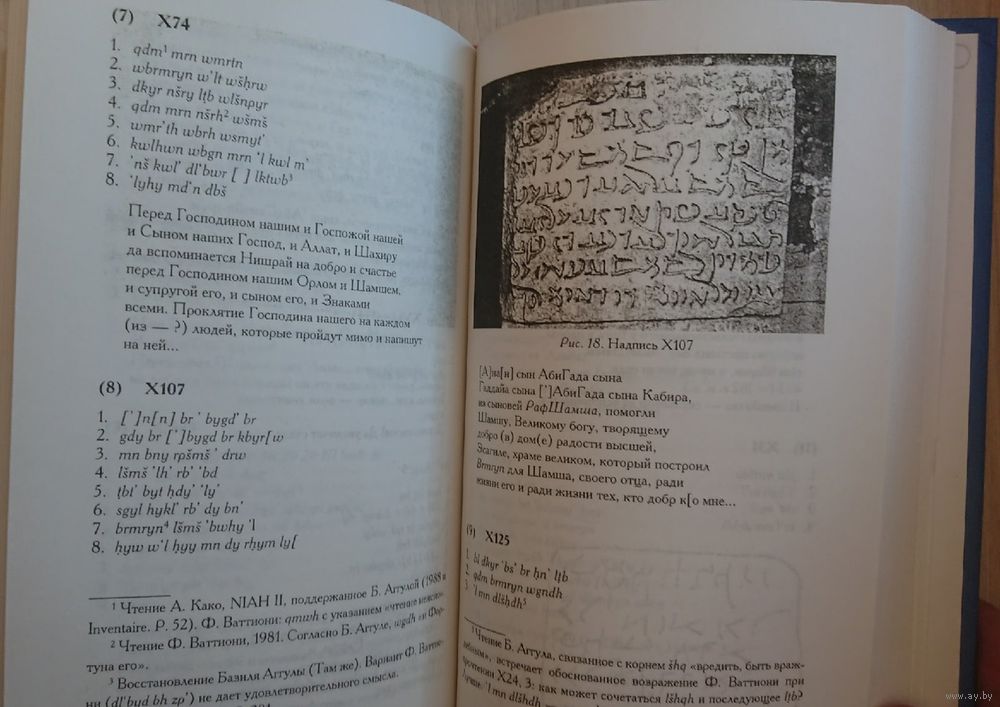 (7) X74
1. qdm¹ mrn wmrtn
2. wbrmryn w'lt wšḥrw
3. dkyr nšry lṭb wlšnpyr
4. qdm mrn nšrh² wšmš
5. wmr'th wbrh wsmyt'
6. kwlhwn wbgn mrn 'l kwl m'
7. 'nš kwl' dl'bwr [ ] lktwb³
8. 'lyhy md'n dbš
Перед Господином нашим и Госпожой нашей
и Сыном наших Господ, и Аллат, и Шахиру
да вспоминается Нишрай на добро и счастье
перед Господином нашим Орлом и Шамшем,
и супругой его, и сыном его, и Знаками
всеми. Проклятие Господина нашего на каждом
(из — ?) людей, которые пройдут мимо и напишут
на ней...
(8) X107
1. [']n[n] br ' bygd' br
2. gdy br [']bygd br kbyr[w
3. mn bny rpšmš ' drw
4. lšmš 'lh' rb' 'bd
5. ṭbt' byt ḥdy' 'ly'
6. sgyl hykl' rb' dy bn'
7. brmryn⁴ lšmš 'bwhy 'l
8. ḥyw w'l ḥyy mn dy rḥym ly[
¹ Чтение А. Како, NIAH II, поддержанное Б. Аггулой (1988 и
Inventaire. P. 52). Ф. Ваттиони: qmwh с указанием «чтение
² Чтение Ф. Ваттиони, 1981. Согласно Б. Аггуле, wgdh «и Фор-
туна его».
³ Восстановление Базиля Аггулы (Там же). Вариант Ф. Ваттио-
ни (dl'byd bh zp') не дает удовлетворительного смысла.
Рис. 18. Надпись X107
[А]на[н] сын АбиГада сына
Гаддайа сына [']АбиГада сына Кабира,
из сыновей РафШамша, помогли
Шамшу, Великому богу, творящему
добро (в) дом(е) радости высшей,
Эсагиле, храме великом, который построил
Brmryn для Шамша, своего отца, ради
жизни его и ради жизни тех, кто добр к[о мне...
(9) X125
1. bl dkyr 'bs' br ḥn' lṭb
2. qdm brmryn wgndh
3. 'l mn dlšḥdh⁵
Чтение Б. Аггула, связанное с корнем šḥq «вредить, быть враж-
дебным», встречает обоснованное возражение Ф. Ваттиони при
прочтении X24, 3: как может сочетаться lšḥqh и последующее lṭb?
'l mn dlšḥdh
www.ay.by